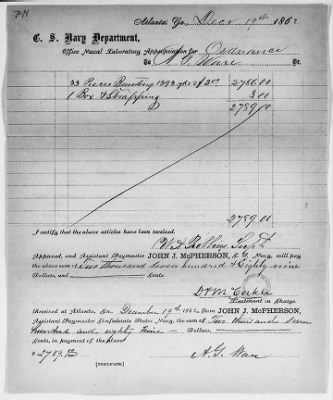 PH
Atlanta Ga, Decr 19th 1862
C. S. Navy Department,
Office Naval Laboratory Appropriation for Ordnance
To A. G. Ware Dr.
33 Pieces Bunting 1393 yds @ 2.00 2786.00
1 Box & Strapping 3.00
2789.00
2789.00
I certify that the above articles have been received.
W. H. Rollins Supt
Approved, and Assistant Paymaster JOHN J. McPHERSON, C. S. Navy, will pay
the above sum of Two thousand seven hundred & Eighty nine
Dollars, and Cents.
Lieutenant in Charge.
Received at Atlanta, Ga. December 19th 1862, from JOHN J. McPHERSON,
Assistant Paymaster Confederate States Navy, the sum of Two thousand seven
hundred and eighty nine Dollars,
Cents, in payment of the above
$2789.00
A. G. Ware